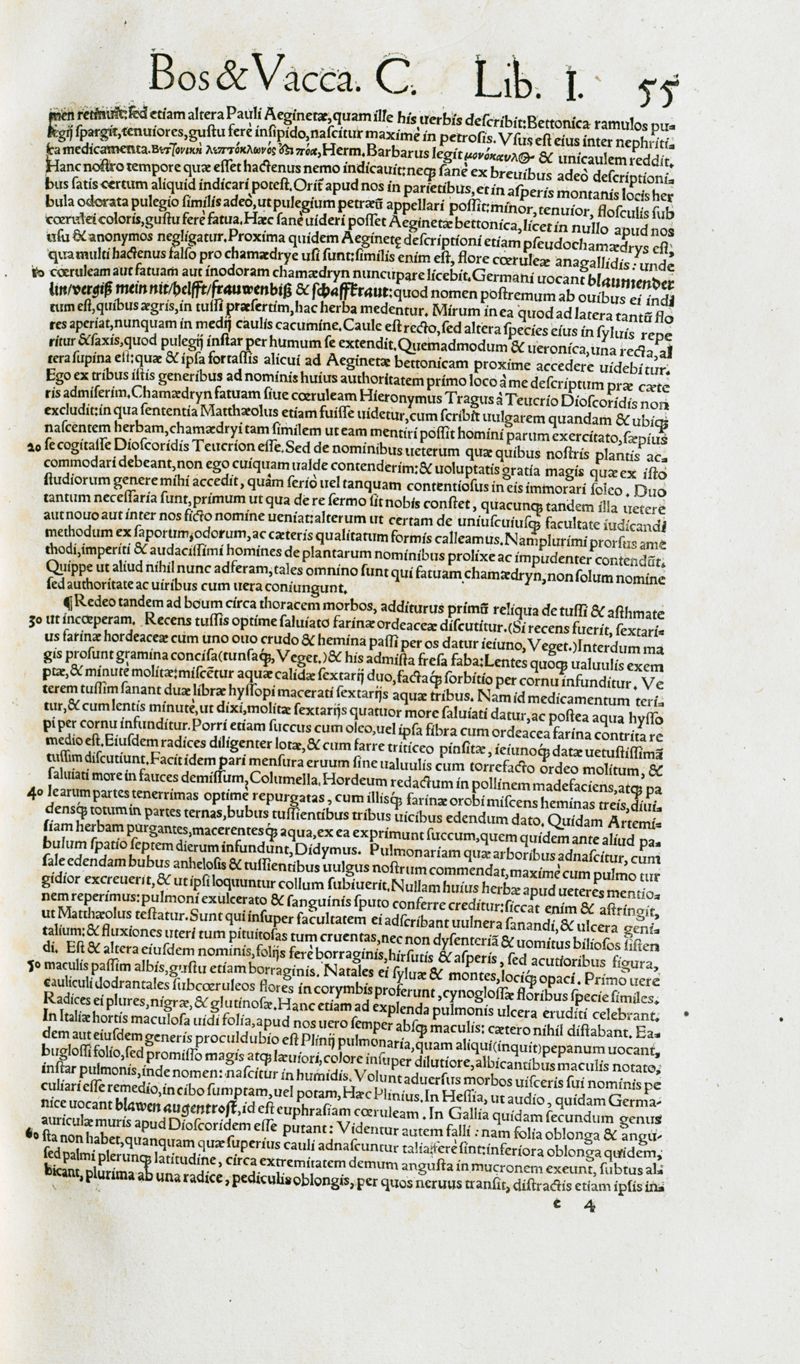 Bos & Vacca. C. Lib. I. 55
men retinuit: sed etiam altera Pauli Aeginetæ, quam ille his uerbis describit: Bettonica ramulos pu-
legij spargit, tenuiores, gustu ferè insipido, nascitur maximè in petrosis. Vsus est eius inter nephriti-
ca medicamenta. Herm. Barbarus legit & unicaulem reddit.
Hanc nostro tempore quæ esset hactenus nemo indicauit: necꝙ sanè ex breuibus adeò descriptioni-
bus satis certum aliquid indicari potest. Orit̃ apud nos in parietibus, et in asperis montanis locis her
bula odorata pulegio similis adeò, ut pulegium petræũ appellari possit: minor, tenuior, flosculis sub
cœrulei coloris, gustu ferè fatua. Hæc sanè uideri posset Aeginetæ bettonica, licet in nullo apud nos
usu & anonymos negligatur. Proxima quidem Aeginetę descriptioni etiam pseudochamædrys est,
qua multi hactenus falso pro chamædrye usi sunt: similis enim est, flore cœruleæ anagallidis: unde
10 cœruleam aut fatuam aut inodoram chamædryn nuncupare licebit. Germani uocant blaumender
lin/vergiß mein nit/helfft/frauwenbiß & schafftraut: quod nomen postremum ab ouibus ei indi
tum est, quibus ægris, in tussi præsertim, hac herba medentur. Mirum in ea quod ad latera tantũ flo
res aperiat, nunquam in medij caulis cacumine. Caule est recto, sed altera species eius in syluis repe
ritur & saxis, quod pulegij instar per humum se extendit. Quemadmodum & ueronica, una recta, al
tera supina est: quæ & ipsa fortassis alicui ad Aeginetæ bettonicam proxime accedere uidebitur.
Ego ex tribus istis generibus ad nominis huius authoritatem primo loco à me descriptum præ cæte
ris admiserim. Chamædryn fatuam siue cœruleam Hieronymus Tragus à Teucrio Dioscoridis non
excludit: in qua sententia Matthæolus etiam fuisse uidetur, cum scribit uulgarem quandam & ubiqꝫ
nascentem herbam, chamædryi tam similem ut eam mentiri possit homini parum exercitato, sæpius
20 se cogitasse Dioscoridis Teucrion esse. Sed de nominibus ueterum quæ quibus nostris plantis ac-
commodari debeant, non ego cuiquam ualde contenderim: & uoluptatis gratia magis quæ ex isto
studiorum genere mihi accedit, quàm seriò uel tanquam contentiosus in eis immorari soleo. Duo
tantum necessaria sunt, primum ut qua de re sermo sit nobis constet, quacunqꝫ tandem illa uetere
aut nouo aut inter nos ficto nomine ueniat: alterum ut certam de uniuscuiusqꝫ facultate iudicandi
methodum ex saporum, odorum, ac cæteris qualitatum formis calleamus. Nam plurimi prorsus ame
thodi, imperiti & audacissimi homines de plantarum nominibus prolixe ac impudenter contendũt.
Quippe ut aliud nihil nunc adferam, tales omnino sunt qui fatuam chamædryn, non solum nomine
sed authoritate ac uiribus cum uera coniungunt.
¶ Redeo tandem ad boum circa thoracem morbos, additurus primũ reliqua de tussi & asthmate
30 ut incœperam. Recens tussis optime saluiato farinæ ordeaceæ discutitur. (Si recens fuerit, sextari-
us farinæ hordeaceæ cum uno ouo crudo & hemina passi per os datur ieiuno, Veget.) Interdum ma
gis prosunt gramina concisa (tunsaqꝫ, Veget.) & his admista fresa faba: Lentes quoqꝫ ualuulis exem
ptæ, & minutè molitæ: miscẽtur aquæ calidæ sextarij duo, factaqꝫ sorbitio per cornu infunditur. Ve
terem tussim sanant duæ libræ hyssopi macerati sextarijs aquæ tribus. Nam id medicamentum teri-
tur, & cum lentis minutè, ut dixi, molitæ sextarijs quatuor more saluiati datur, ac postea aqua hysso
pi per cornu infunditur. Porri etiam succus cum oleo, uel ipsa fibra cum ordeacea farina contrita re
medio est. Eiusdem radices diligenter lotæ, & cum farre triticeo pinsitæ, ieiunoqꝫ datæ uetustissimã
tussim discutiunt. Facit idem pari mensura eruum sine ualuulis cum torrefacto ordeo molitum, &
saluiati more in fauces demissum, Columella. Hordeum redactum in pollinem madefaciens, atqꝫ pa
40 learum partes tenerrimas optimè repurgatas, cum illisqꝫ farinæ orobi miscens heminas treis, diui-
densqꝫ totum in partes ternas, bubus tussientibus tribus uicibus edendum dato. Quidam Artemi-
siam herbam purgantes, macerentesqꝫ aqua, ex ea exprimunt succum, quem quidem ante aliud pa-
bulum spatio septem dierum infundunt, Didymus. Pulmonariam quæ arboribus adnascitur, cum
sale edendam bubus anhelosis & tussientibus uulgus nostrum commendat, maxime cum pulmo tur
gidior excreuerit, & ut ipsi loquuntur collum subiuerit. Nullam huius herbæ apud ueteres mentio-
nem reperimus: pulmoni exulcerato & sanguinis sputo conferre creditur: siccat enim & astringit,
ut Matthæolus testatur. Sunt qui insuper facultatem ei adscribant uulnera sanandi, & ulcera geni-
talium: & fluxiones uteri tum pituitosas tum cruentas, nec non dysenteriã & uomitus biliosos sisten
di. Est & altera eiusdem nominis, folijs ferè borraginis, hirsutis & asperis, sed acutioribus figura,
50 maculis passim albis, gustu etiam borraginis. Natales ei syluæ & montes, lociqꝫ opaci. Primo uere
cauliculi dodrantales subcœruleos flores in corymbis proferunt, cynoglossæ floribus specie similes.
Radices ei plures, nigræ, & glutinosæ. Hanc etiam ad explenda pulmonis ulcera eruditi celebrant.
In Italiæ hortis maculosa uidi folia, apud nos uero semper absqꝫ maculis: cætero nihil distabant. Ea-
dem aut eiusdem generis proculdubio est Plinij pulmonaria, quam aliqui (inquit) pepanum uocant,
buglossi folio, sed promisso magis atqꝫ læuiori, colore insuper dilutiore, albicantibus maculis notato,
instar pulmonis, inde nomen: nascitur in humidis. Volunt aduersus morbos uisceris sui nominis pe
culiari esse remedio, in cibo sumptam, uel potam, Hæc Plinius. In Hessia, ut audio, quidam Germa-
nice uocant blawen augentrost, id est euphrasiam cœruleam. In Gallia quidam secundum genus
auriculæ muris apud Dioscoridem esse putant: Videntur autem falli: nam folia oblonga & angu-
60 sta non habet, quanquam quæ superius cauli adnascuntur talia ferè sint: inferiora oblonga quidem,
sed palmi plerunqꝫ latitudine, circa extremitatem demum angusta in mucronem exeunt, subtus al-
bicant, plurima ab una radice, pediculis oblongis, per quos neruus transit, distractis etiam ipsis in-
e 4